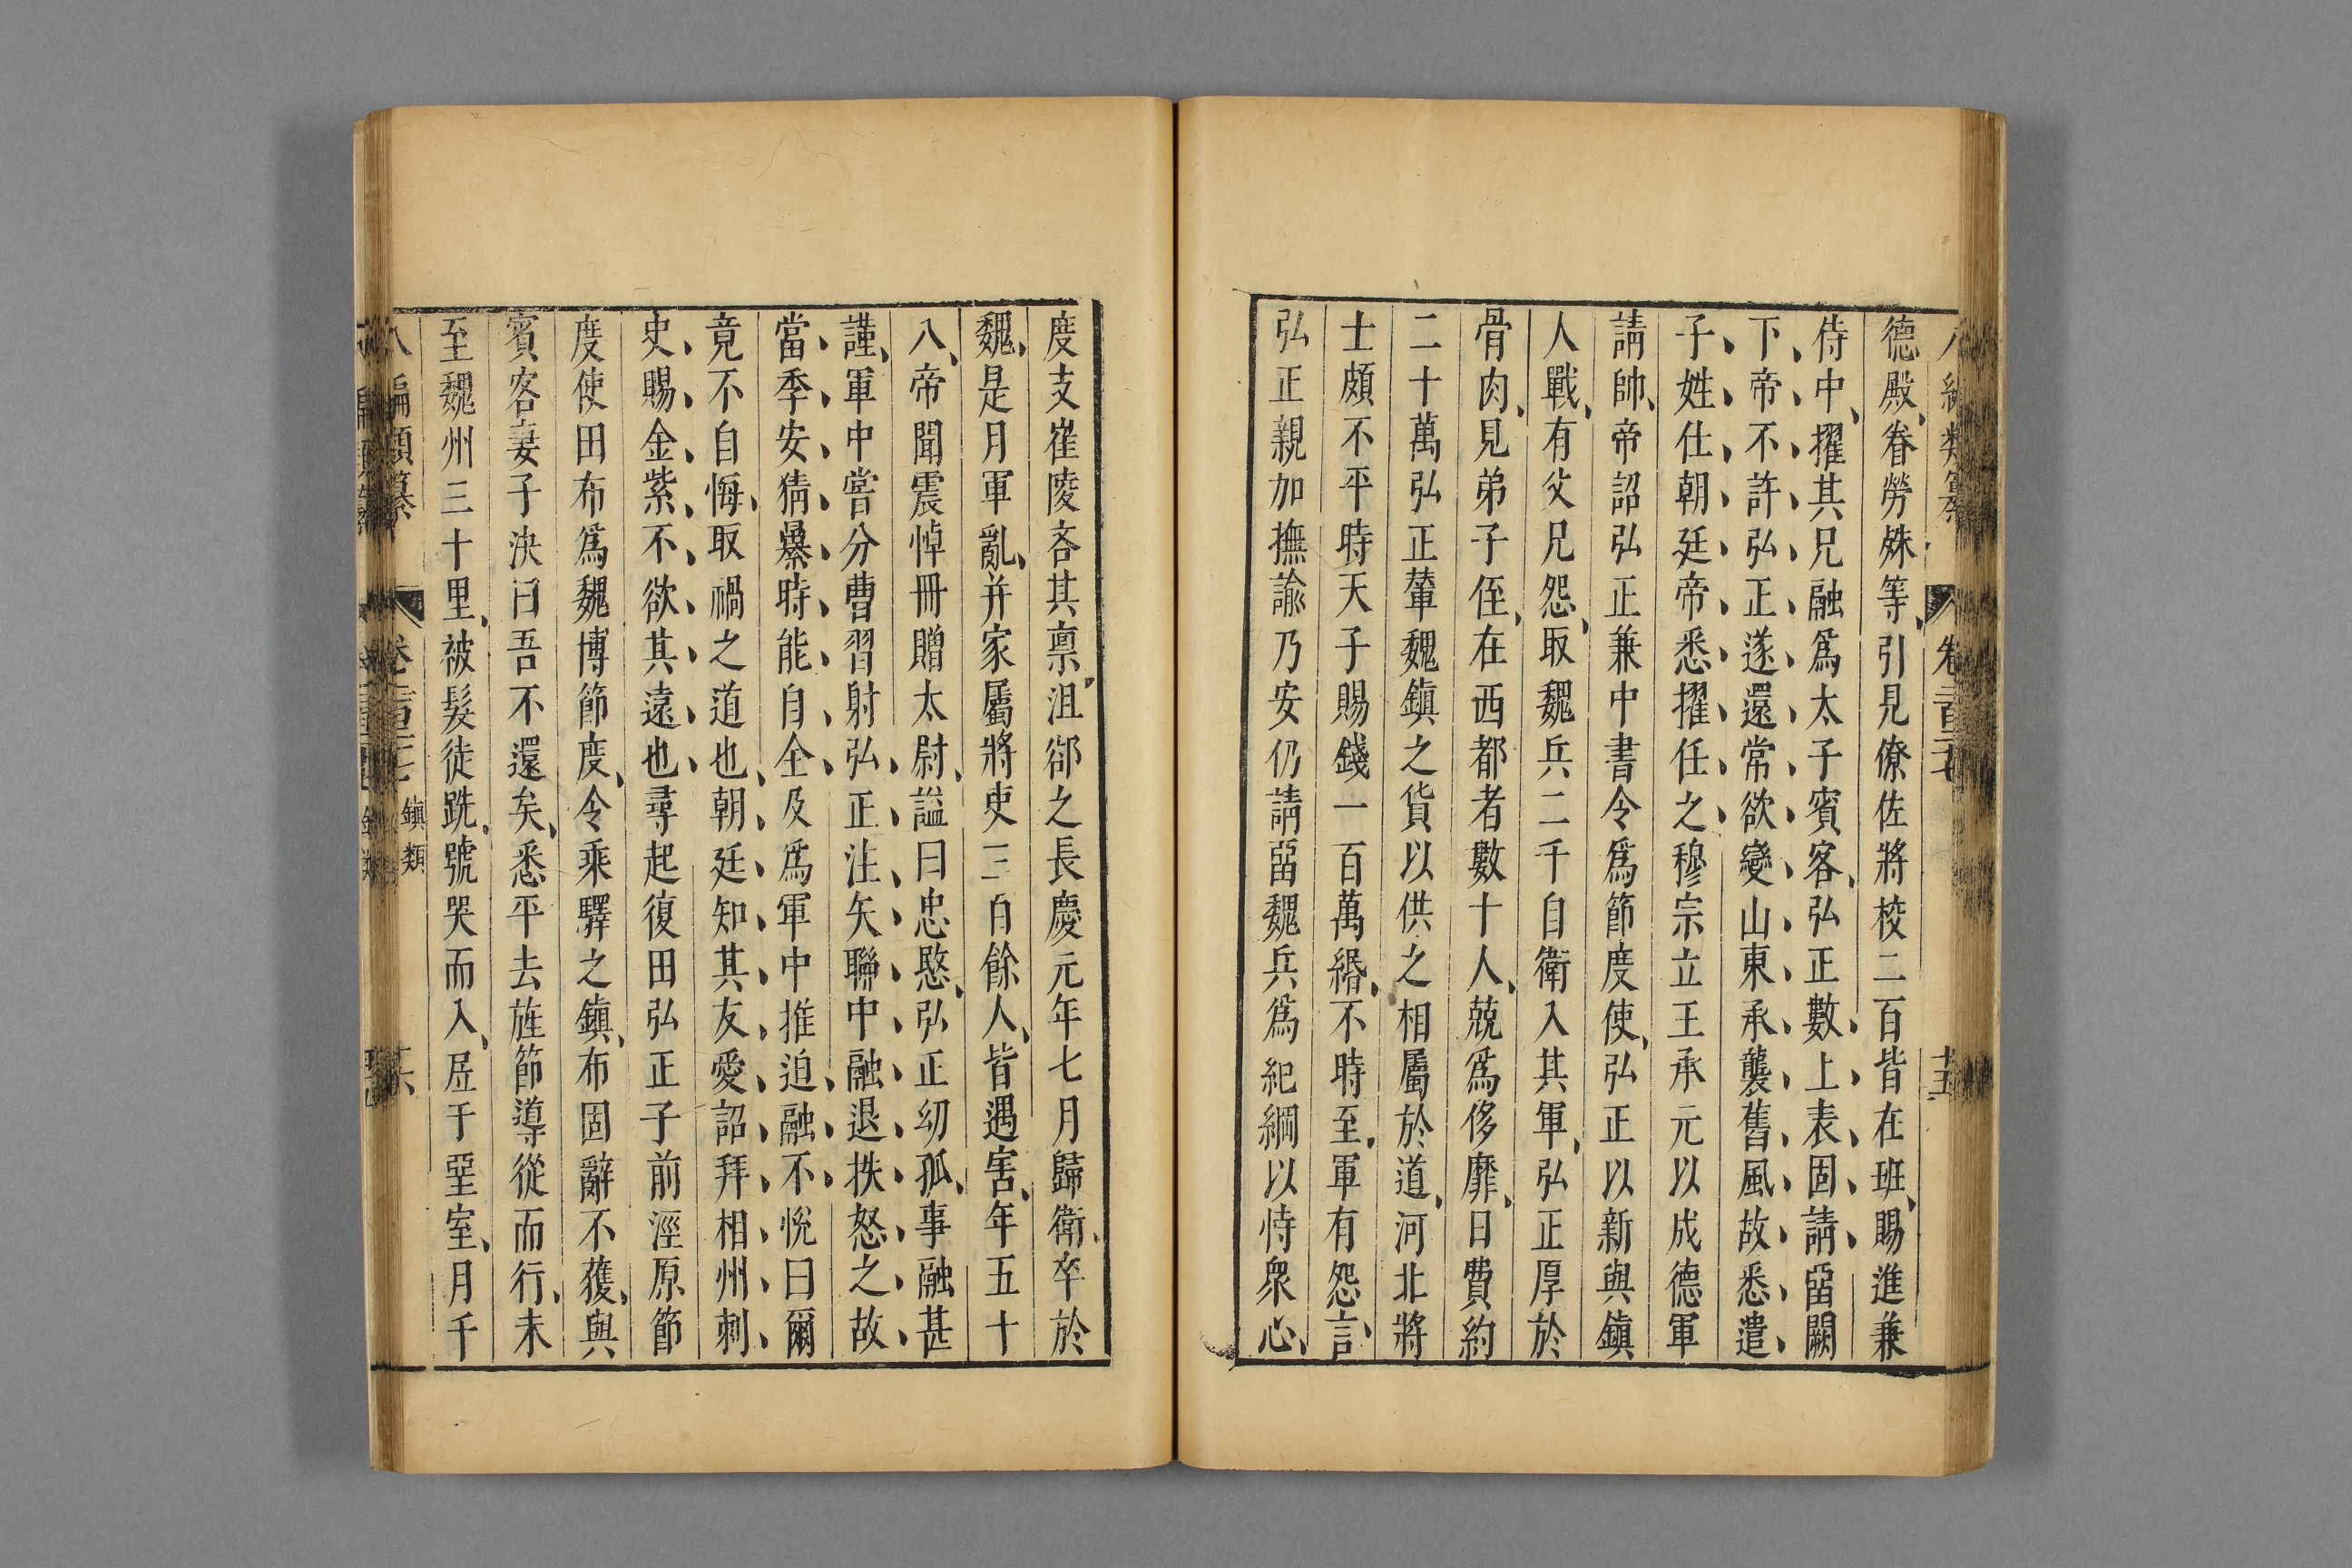 德殿眷勞殊等引見僚佐將校二百皆在班賜進兼
侍中擢其兄融爲太子賓客弘正數上表固請畱闕
下帝不許弘正遂還常欲變山東承襲舊風故悉遣
子姓仕朝廷帝悉擢任之穆宗立王承元以成德軍
請帥帝詔弘正兼中書令爲節度使弘正以新與鎮
人戰有父兄怨取魏兵二千自衛入其軍弘正厚於
骨肉見弟子侄在西都者數十人兢爲侈靡日費約
二十萬弘正輦魏鎮之貨以供之相屬於道河北將
士頗不平時天子賜錢一百萬緡不時至軍有怨言
弘正親加撫諭乃安仍請畱魏兵爲紀綱以恃衆心
度支崔陵吝其禀沮郤之長慶元年七月歸衛卒於
魏是月軍亂并家屬將吏三百餘人皆遇害年五十
八帝聞震悼冊贈太尉謚曰忠愍弘正幼孤事融甚
謹軍中嘗分曹習射弘正注矢聯中融退抶怒之故
當季安猜暴時能自全及爲軍中推迫融不悅曰爾
竟不自悔取禍之道也朝廷知其友愛詔拜相州刺
史賜金紫不欲其遠也尋起復田弘正子前涇原節
度使田布爲魏博節度令乘驛之鎮布固辭不獲與
賓客妻子決曰吾不還矣悉平去旌節導從而行未
至魏州三十里被髮徒跣號哭而入居于堊室月千
八編類纂 卷二百三十七 鎮類 十六